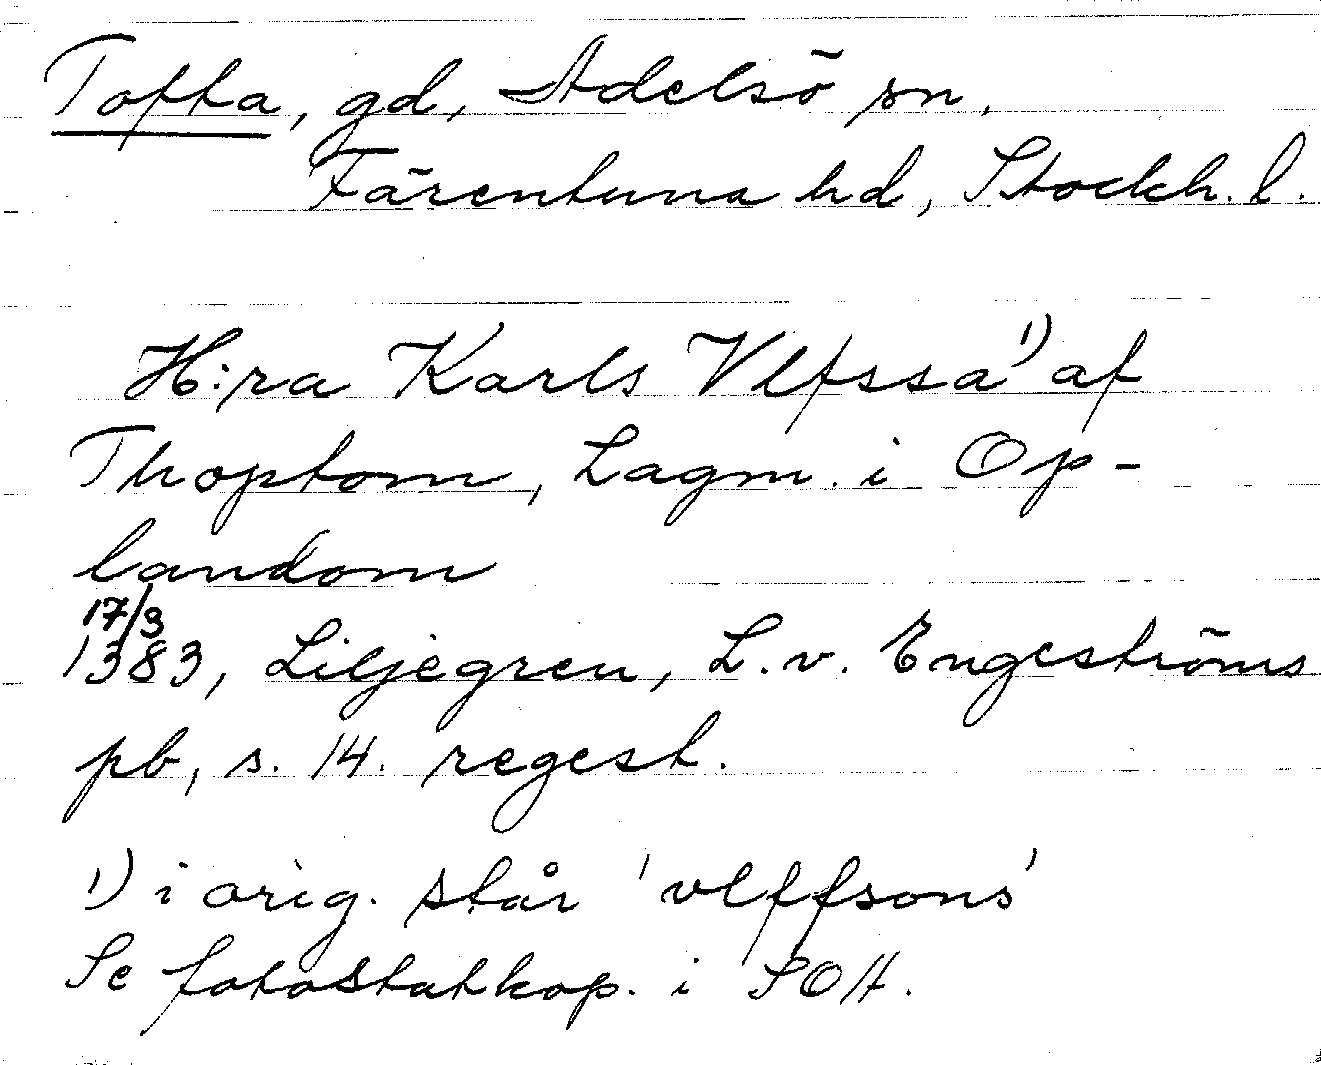 Tofta, gd, Adelsö sn,
Färentuna hd, Stockh. l.
H:ra Karls Vlfssa¹⁾ af
Thoptom, Lagm. i Op-
landom
17/3
1383, Liljegren, L. v. Engeströms
pb, s. 14. regest.
1) i orig. står 'vlffsons'
Se fotostatkop. i SOA.